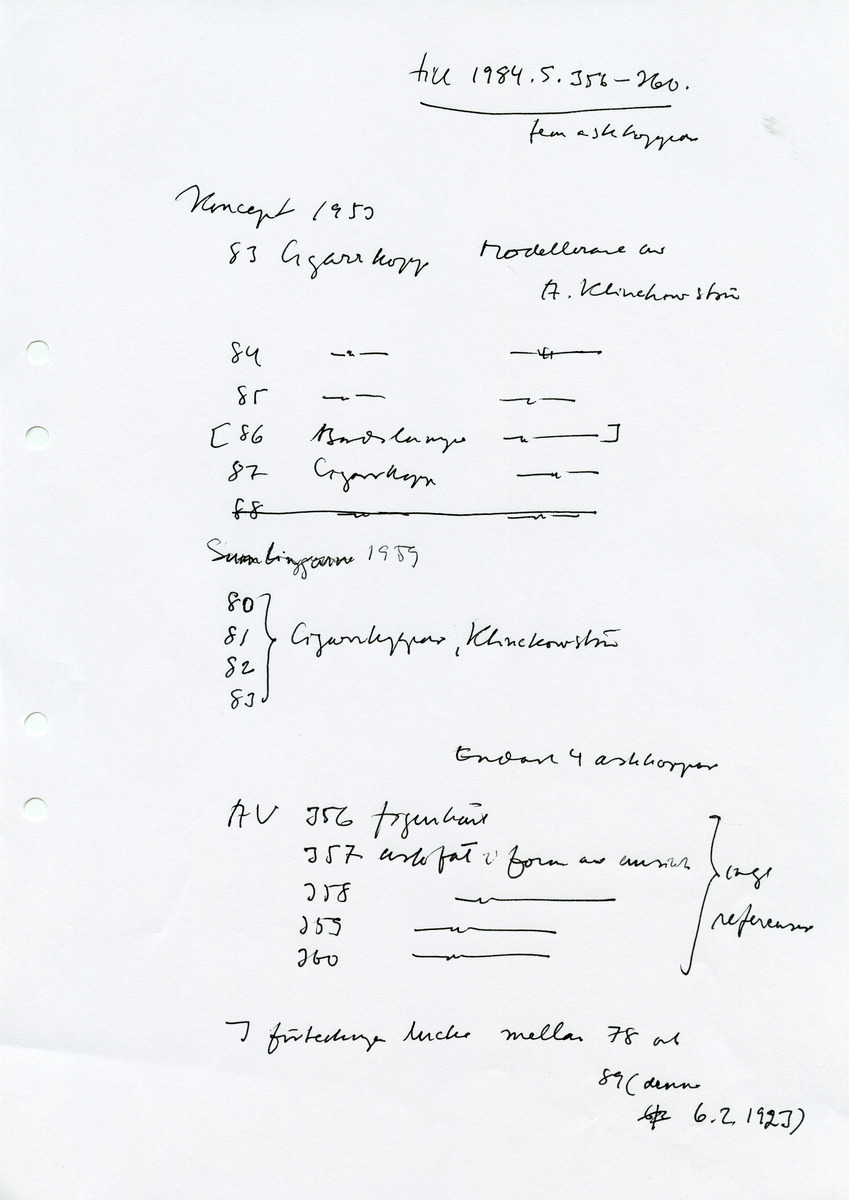 till 1984.S.356–360.
fem askkoppar
Koncept 1953
83 Cigarrkopp Modellerare av
A. Klinckowström
84 —"— —"—
85 —"— —"—
[86 Bordslampa —"—]
87 Cigarrkopp —"—
88 —"— —"—
Samlingarne 1959
80
81 Cigarrkoppar, Klinckowström
82
83
Endast 4 askkoppar
AV 356
357 askfat i form av
358 —"—
359 —"—
360 —"—
inga
referenser
I förteckningen lucka mellan 78 och
89 (denne
6.2.1923)